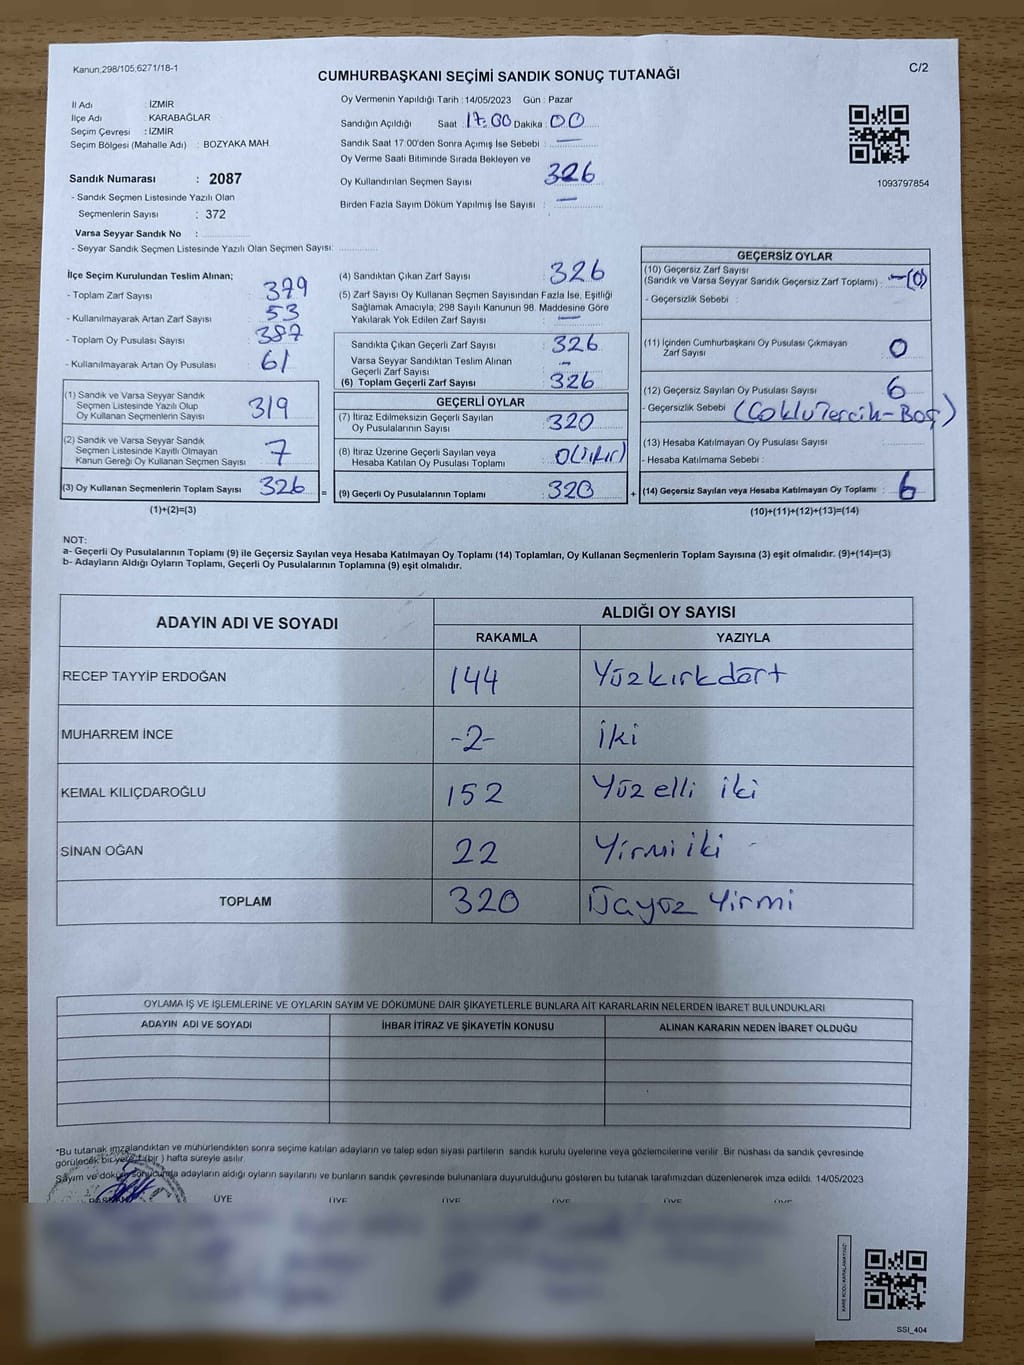 Kanun,298/105,6271/18-1
C/2
CUMHURBAŞKANI SEÇİMİ SANDIK SONUÇ TUTANAĞI
İl Adı : İZMİR
İlçe Adı : KARABAĞLAR
Seçim Çevresi : İZMİR
Seçim Bölgesi (Mahalle Adı) : BOZYAKA MAH.
Sandık Numarası : 2087
- Sandık Seçmen Listesinde Yazılı Olan
Seçmenlerin Sayısı : 372
Varsa Seyyar Sandık No :
- Seyyar Sandık Seçmen Listesinde Yazılı Olan Seçmen Sayısı:
Oy Vermenin Yapıldığı Tarih :14/05/2023 Gün : Pazar
Sandığın Açıldığı Saat : 17:00 Dakika : 00
Sandık Saat 17:00'den Sonra Açımış İse Sebebi : —
Oy Verme Saati Bitiminde Sırada Bekleyen ve
Oy Kullandırılan Seçmen Sayısı : 326
Birden Fazla Sayım Döküm Yapılmış İse Sayısı : —
1093797854
İlçe Seçim Kurulundan Teslim Alınan;
- Toplam Zarf Sayısı : 379
- Kullanılmayarak Artan Zarf Sayısı : 53
- Toplam Oy Pusulası Sayısı : 387
- Kullanılmayarak Artan Oy Pusulası : 61
(1) Sandık ve Varsa Seyyar Sandık
Seçmen Listesinde Yazılı Olup
Oy Kullanan Seçmenlerin Sayısı : 319
(2) Sandık ve Varsa Seyyar Sandık
Seçmen Listesinde Kayıtlı Olmayan
Kanun Gereği Oy Kullanan Seçmen Sayısı : 7
(3) Oy Kullanan Seçmenlerin Toplam Sayısı : 326
(1)+(2)=(3)
(4) Sandıktan Çıkan Zarf Sayısı : 326
(5) Zarf Sayısı Oy Kullanan Seçmen Sayısından Fazla İse, Eşitliği
Sağlamak Amacıyla, 298 Sayılı Kanunun 98. Maddesine Göre
Yakılarak Yok Edilen Zarf Sayısı : —
Sandıkta Çıkan Geçerli Zarf Sayısı : 326
Varsa Seyyar Sandıktan Teslim Alınan
Geçerli Zarf Sayısı : —
(6) Toplam Geçerli Zarf Sayısı : 326
GEÇERLİ OYLAR
(7) İtiraz Edilmeksizin Geçerli Sayılan
Oy Pusulalarının Sayısı : 320
(8) İtiraz Üzerine Geçerli Sayılan veya
Hesaba Katılan Oy Pusulası Toplamı : 0(sıfır)
= (9) Geçerli Oy Pusulalarının Toplamı : 320 +
GEÇERSİZ OYLAR
(10) Geçersiz Zarf Sayısı
(Sandık ve Varsa Seyyar Sandık Geçersiz Zarf Toplamı) : —(0)
- Geçersizlik Sebebi :
(11) İçinden Cumhurbaşkanı Oy Pusulası Çıkmayan
Zarf Sayısı : 0
(12) Geçersiz Sayılan Oy Pusulası Sayısı : 6
- Geçersizlik Sebebi : (Çoklu Tercih-Boş)
(13) Hesaba Katılmayan Oy Pusulası Sayısı :
- Hesaba Katılmama Sebebi :
(14) Geçersiz Sayılan veya Hesaba Katılmayan Oy Toplamı : 6
(10)+(11)+(12)+(13)=(14)
NOT:
a- Geçerli Oy Pusulalarının Toplamı (9) ile Geçersiz Sayılan veya Hesaba Katılmayan Oy Toplamı (14) Toplamları, Oy Kullanan Seçmenlerin Toplam Sayısına (3) eşit olmalıdır. (9)+(14)=(3)
b- Adayların Aldığı Oyların Toplamı, Geçerli Oy Pusulalarının Toplamına (9) eşit olmalıdır.
ADAYIN ADI VE SOYADI
ALDIĞI OY SAYISI
RAKAMLA YAZIYLA
RECEP TAYYİP ERDOĞAN 144 Yüzkırkdört
MUHARREM İNCE -2- İki
KEMAL KILIÇDAROĞLU 152 Yüz elli iki
SİNAN OĞAN 22 Yirmi iki
TOPLAM 320 Üçyüz Yirmi
OYLAMA İŞ VE İŞLEMLERİNE VE OYLARIN SAYIM VE DÖKÜMÜNE DAİR ŞİKAYETLERLE BUNLARA AİT KARARLARIN NELERDEN İBARET BULUNDUKLARI
ADAYIN ADI VE SOYADI İHBAR İTİRAZ VE ŞİKAYETİN KONUSU ALINAN KARARIN NEDEN İBARET OLDUĞU
*Bu tutanak imzalandıktan ve mühürlendikten sonra seçime katılan adayların ve talep eden siyasi partilerin sandık kurulu üyelerine veya gözlemcilerine verilir. Bir nüshası da sandık çevresinde
görülecek bir yere 1 (bir ) hafta süreyle asılır.
Sayım ve döküm sonucunda adayların aldığı oyların sayılarını ve bunların sandık çevresinde bulunanlara duyurulduğunu gösteren bu tutanak tarafımızdan düzenlenerek imza edildi. 14/05/2023
BAŞKAN ÜYE ÜYE ÜYE ÜYE ÜYE ÜYE
KARE KODU KARALAMAYINIZ!
SSI_404